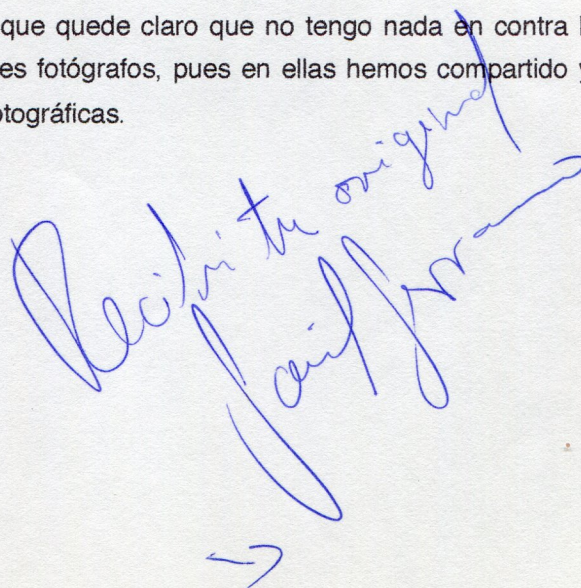 que quede claro que no tengo nada en contra
es fotógrafos, pues en ellas hemos compartido y
otográficas.
Recibí tu original